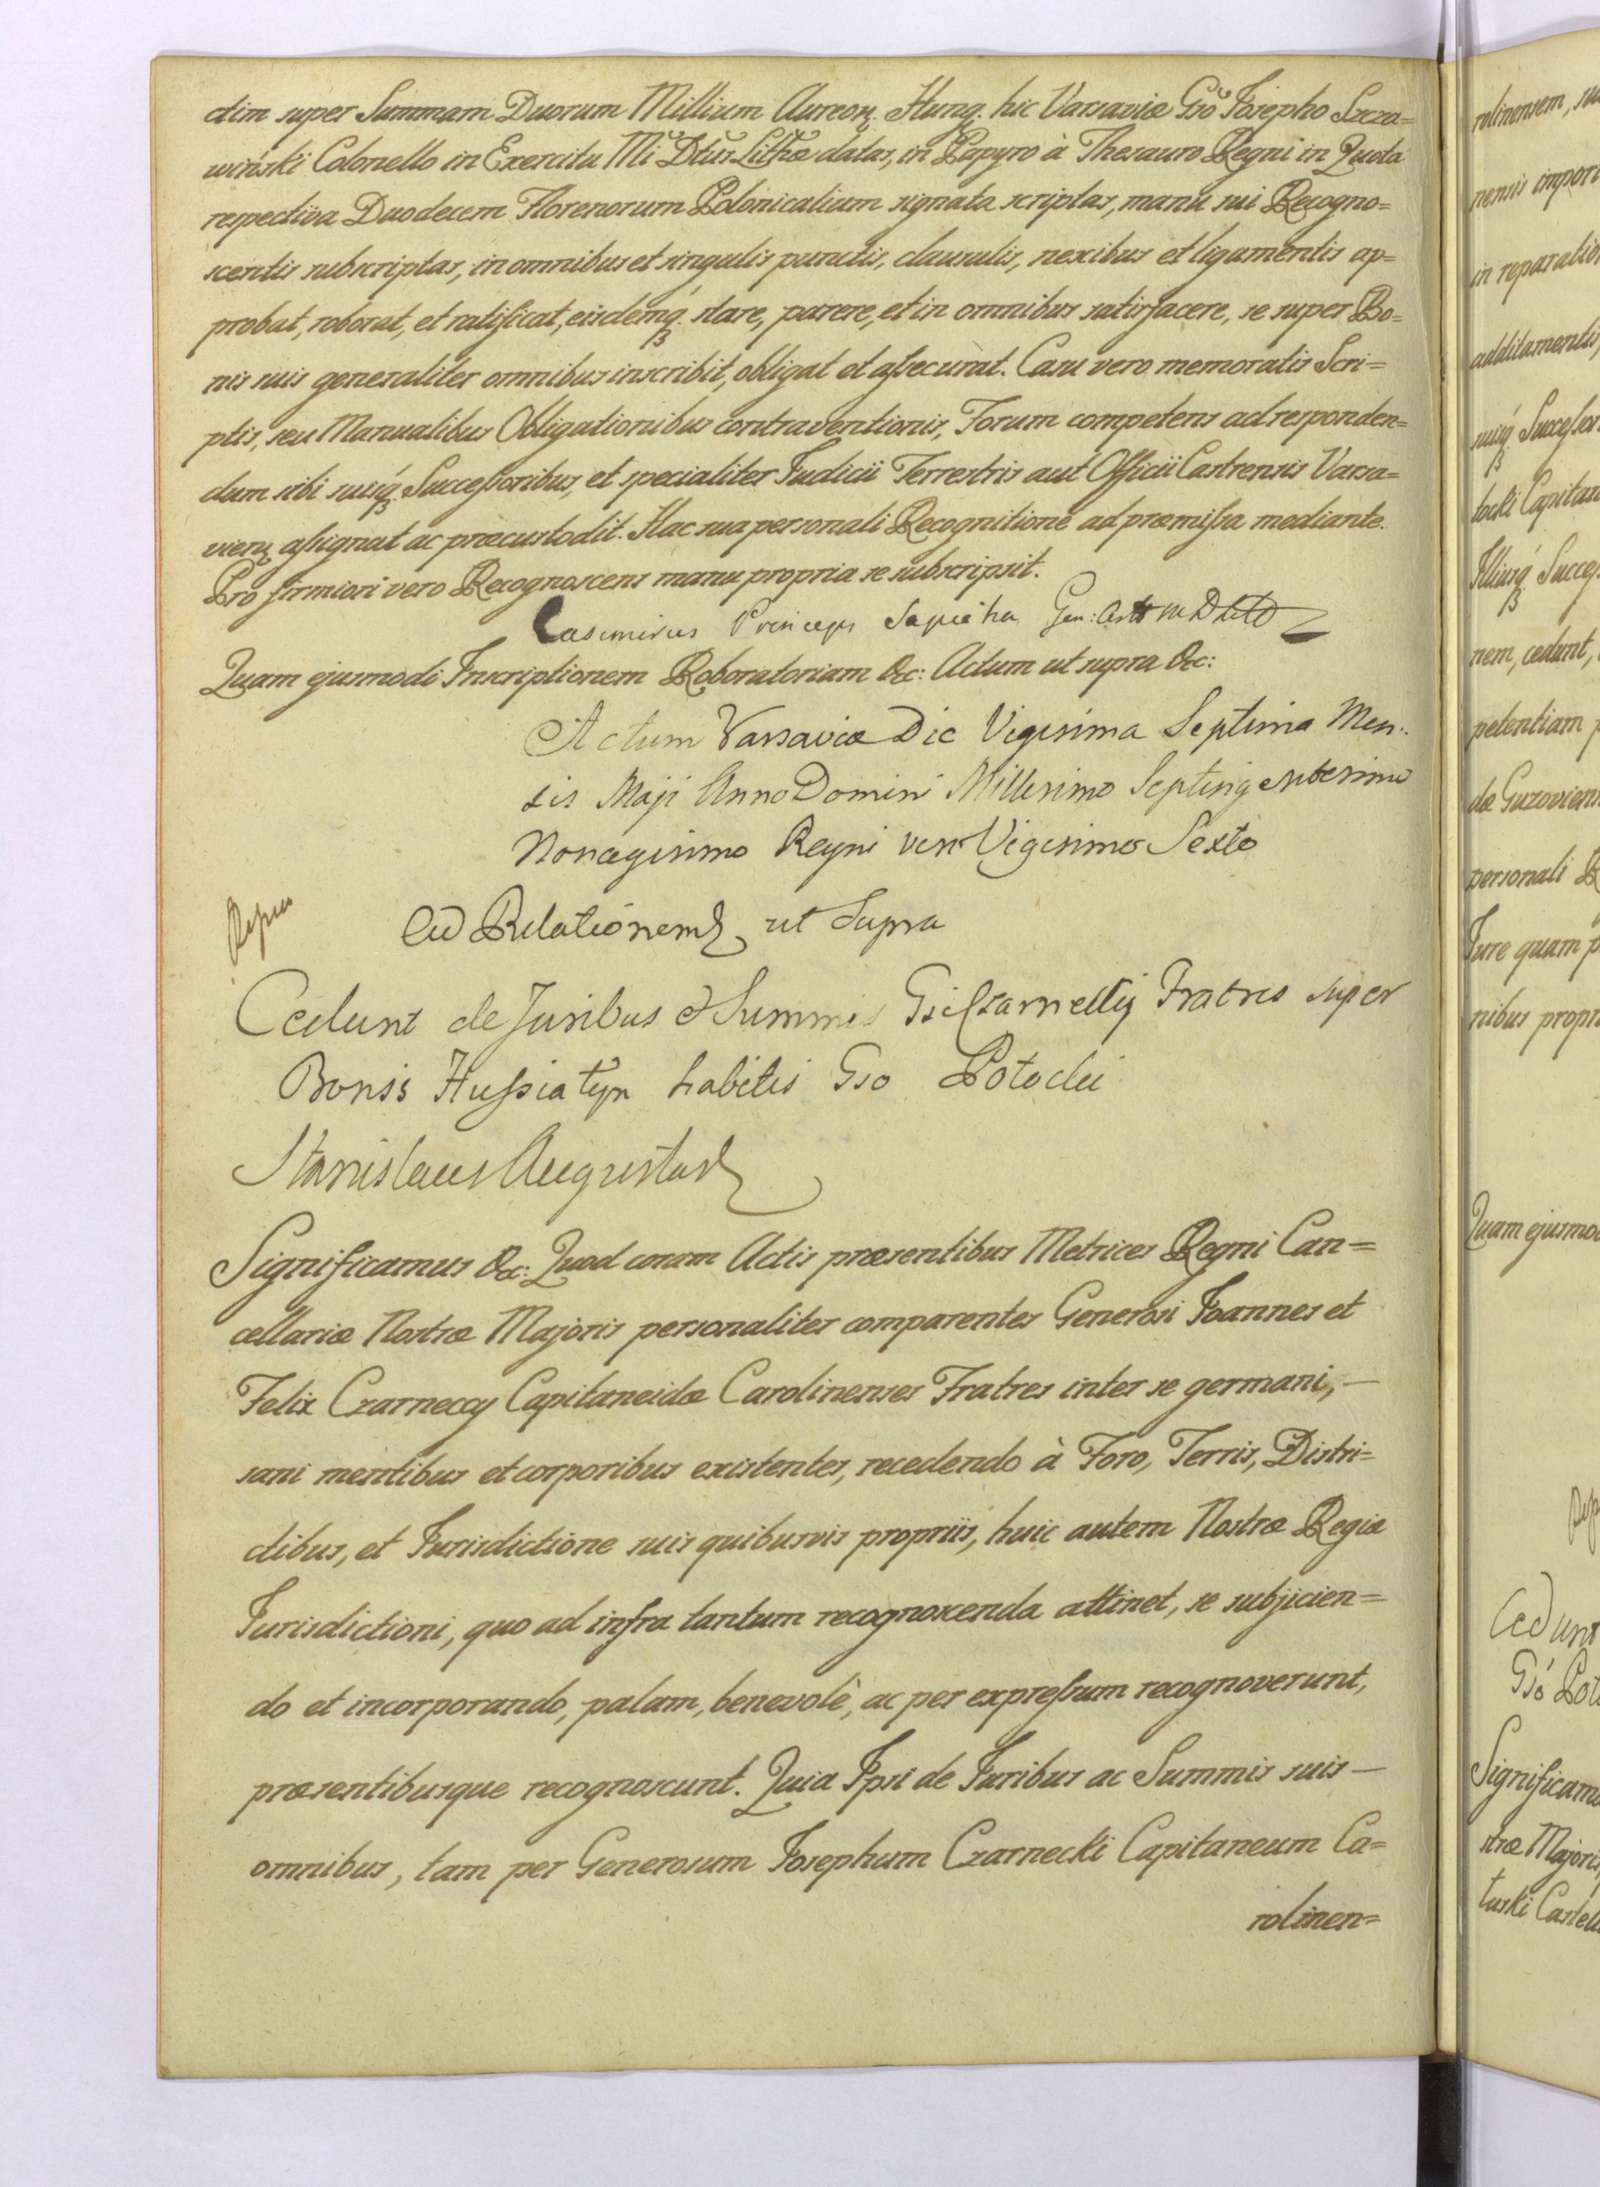 ctim super Summam Duorum Millium Aureorꝝ Hungꝝ hic Varsaviæ Gso Josepho Szcza=
wiński Colonello in Exercitu M. Dtus Lithæ datas, in Papyro à Thesauro Regni in Quota
respectiva Duodecem Florenorum Polonicalium signata scriptas, manu sui Recogno=
scentis subscriptas, in omnibus et singulis punctis, clausulis, nexibus et ligamentis ap=
probat, roborat, et ratificat, eisdemq. stare, parere, et in omnibus satisfacere, se super Bo=
nis suis generaliter omnibus inscribit, obligat et assecurat. Casu vero memoratis Scri=
ptis, seu Manualibus Obligationibus contraventionis, Forum competens ad responden=
dum sibi suisq. Successoribus, et specialiter Judicii Terrestris aut Officii Castrensis Varsa=
vienꝝ assignat ac præcustodit. Hac sua personali Recognitione ad præmissa mediante.
Pro firmiori vero Recognoscens manu propria se subscripsit.
Casimirus Princeps Sapieha Gen: Art: M D Litt
Quam ejusmodi Inscriptionem Roboratoriam &c: Actum ut supra &c:
Actum Varsaviæ Die Vigesima Septima Men=
sis Maji Anno Domini Millesimo Septingentesimo
Nonagesimo Regni vero Vigesimo Sexto
Ad Relationem ut Supra
Cedunt de Juribus & Summis Gsi Czarneckij Fratres super
Bonis Hussiatyn habitis Gso Potocki
Stanislaus Augustus
Significamus &c: Quod coram Actis præsentibus Metrices Regni Can=
cellariæ Nostræ Majoris personaliter comparentes Generosi Joannes et
Felix Czarneccy Capitaneidæ Carolinenses Fratres inter se germani, —
sani mentibus et corporibus existentes, recedendo à Foro, Terris, Distri=
ctibus, et Jurisdictione suis quibusvis propriis, huic autem Nostræ Regiæ
Jurisdictioni, quo ad infra tantum recognoscenda attinet, se subjicien=
do et incorporando, palam, benevolè, ac per expressum recognoverunt,
præsentibusque recognoscunt. Quia Ipsi de Juribus ac Summis suis —
omnibus, tam per Generosum Josephum Czarnecki Capitaneum Ca=
rolinen=
rolinensem, su
nensis impor
in reparatio
additamentis,
suisq. Successor
tocki Capitan
Illiusq. Succes
nem, cedunt,
petentiam p
dæ Guzoviens
personali R
Jure quam p
nibus propri
Quam ejusmo
Cedunt
Gso Pot
Significamu
stræ Majoris
tuski Castel